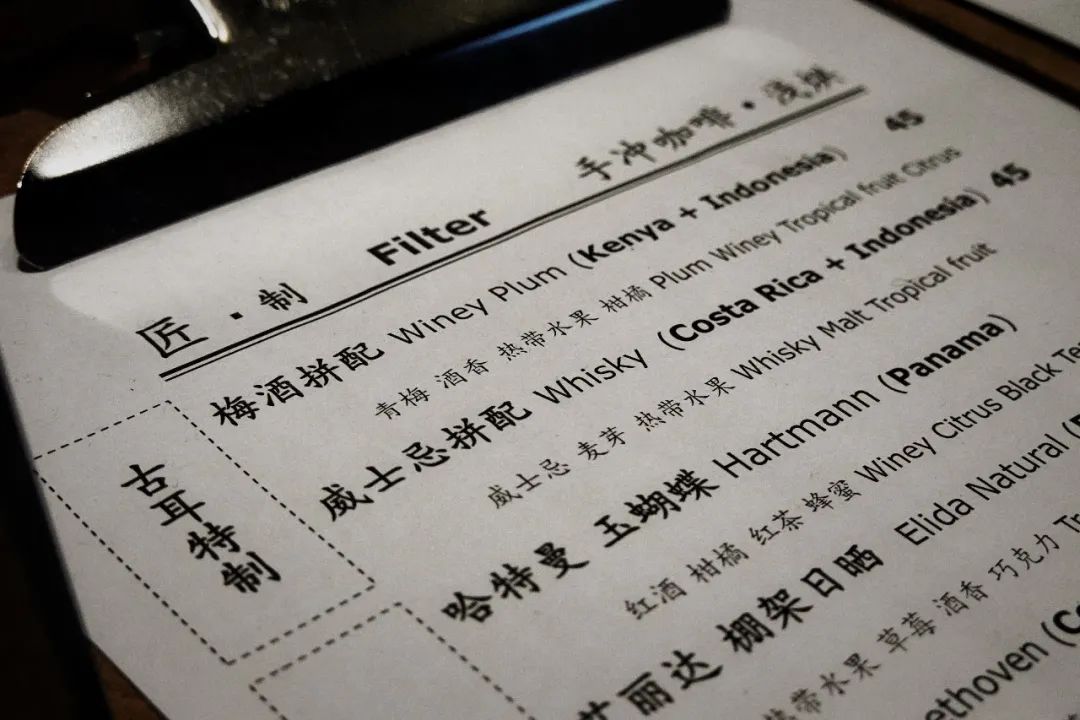 匠·制 Filter 手冲咖啡·浅烘
梅酒拼配 Winey Plum (Kenya + Indonesia) 45
青梅 酒香 热带水果 柑橘 Plum Winey Tropical fruit Citrus
威士忌拼配 Whisky (Costa Rica + Indonesia) 45
威士忌 麦芽 热带水果 Whisky Malt Tropical fruit
古耳特制
哈特曼 玉蝴蝶 Hartmann (Panama)
红酒 柑橘 红茶 蜂蜜 Winey Citrus Black
艾丽达 棚架日晒 Elida Natural
热带水果 草莓 酒香 巧克力